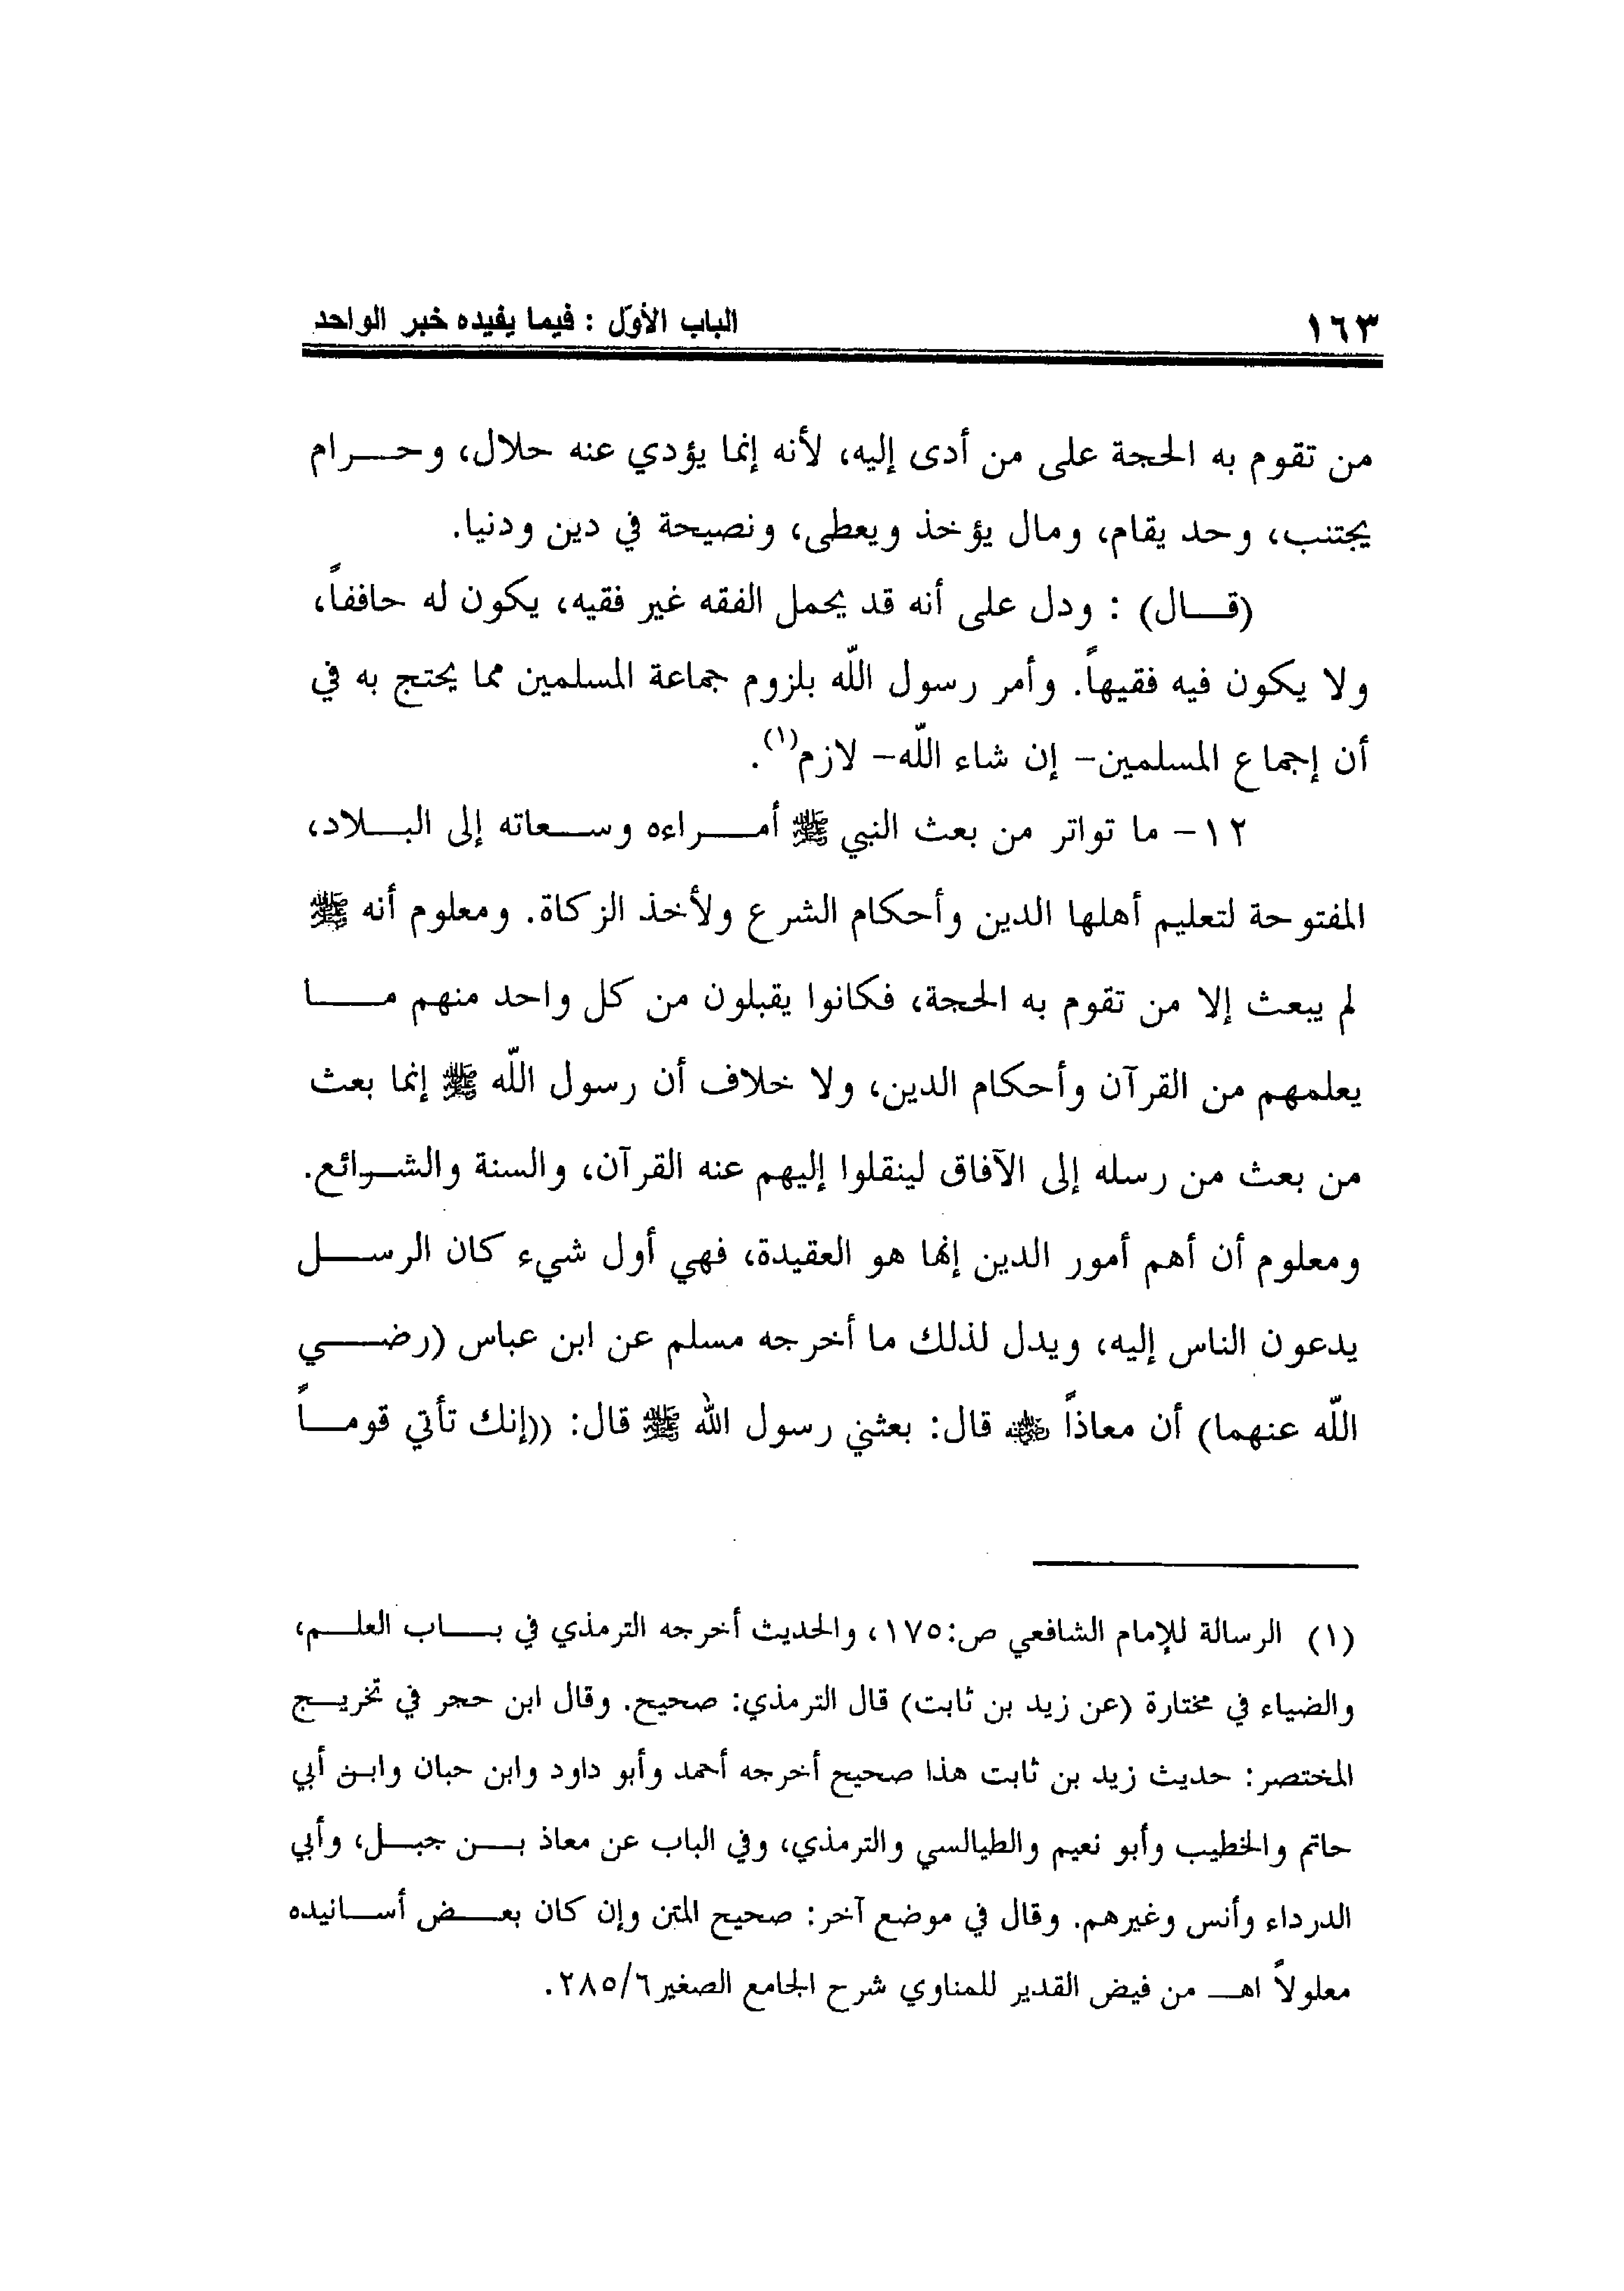 ١٦٣ الباب الأوّل : فيما يفيده خبر الواحد
من تقوم به الحجة على من أدى إليه، لأنه إنما يؤدي عنه حلال، وحرام
يجتنب، وحد يقام، ومال يؤخذ ويعطى، ونصيحة في دين ودنيا.
(قال) : ودل على أنه قد يحمل الفقه غير فقيه، يكون له حاففاً،
ولا يكون فيه فقيهاً. وأمر رسول اللّه بلزوم جماعة المسلمين مما يحتج به في
أن إجماع المسلمين- إن شاء اللّه- لازم(١).
١٢- ما تواتر من بعث النبي ﷺ أمراءه وسعاته إلى البلاد،
المفتوحة لتعليم أهلها الدين وأحكام الشرع ولأخذ الزكاة. ومعلوم أنه ﷺ
لم يبعث إلا من تقوم به الحجة، فكانوا يقبلون من كل واحد منهم ما
يعلمهم من القرآن وأحكام الدين، ولا خلاف أن رسول اللّه ﷺ إنما بعث
من بعث من رسله إلى الآفاق لينقلوا إليهم عنه القرآن، والسنة والشرائع.
ومعلوم أن أهم أمور الدين إنما هو العقيدة، فهي أول شيء كان الرسل
يدعون الناس إليه، ويدل لذلك ما أخرجه مسلم عن ابن عباس (رضي
اللّه عنهما) أن معاذاً رضي الله عنه قال: بعثني رسول الله ﷺ قال: ((إنك تأتي قوماً
(١) الرسالة للإمام الشافعي ص:١٧٥، والحديث أخرجه الترمذي في باب العلم،
والضياء في مختارة (عن زيد بن ثابت) قال الترمذي: صحيح. وقال ابن حجر في تخريج
المختصر: حديث زيد بن ثابت هذا صحيح أخرجه أحمد وأبو داود وابن حبان وابن أبي
حاتم والخطيب وأبو نعيم والطيالسي والترمذي، وفي الباب عن معاذ بن جبل، وأبي
الدرداء وأنس وغيرهم. وقال في موضع آخر: صحيح المتن وإن كان بعض أسانيده
معلولاً اهـ من فيض القدير للمناوي شرح الجامع الصغير٢٨٥/٦.